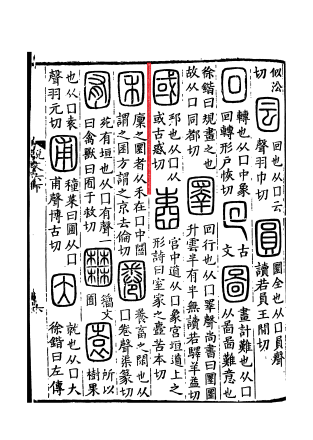 似沿切 囩 回也从囗云聲羽巾切 圓 圜全也从囗員聲讀若員王問切
回 轉也从囗中象回轉形戶恢切 古文 圖 畫計難也从囗从啚啚難意也
徐鍇曰規畫之也故从囗同都切 圛 回行也从囗睪聲尚書曰圛圛升雲半有半無讀若驛羊益切
國 邦也从囗从或古惑切 壼 宮中道从囗象宮垣道上之形詩曰室家之壼苦本切
囷 廩之圜者从禾在囗中圜謂之囷方謂之京去倫切 圈 養畜之閑也从囗卷聲渠篆切
囿 苑有垣也从囗有聲一曰禽獸曰囿于救切 籒文囿 園 所以樹果
也从囗袁聲羽元切 圃 種菜曰圃从囗甫聲博古切 因 就也从囗大徐鍇曰左傳